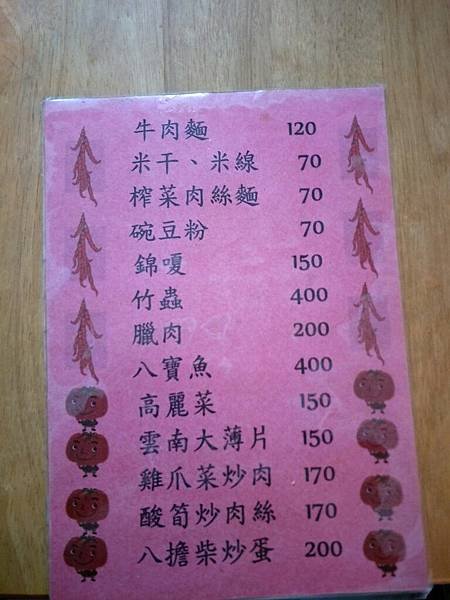 牛肉麵 120
米干、米線 70
榨菜肉絲麵 70
碗豆粉 70
錦嗄 150
竹蟲 400
臘肉 200
八寶魚 400
高麗菜 150
雲南大薄片 150
雞爪菜炒肉 170
酸筍炒肉絲 170
八擔柴炒蛋 200